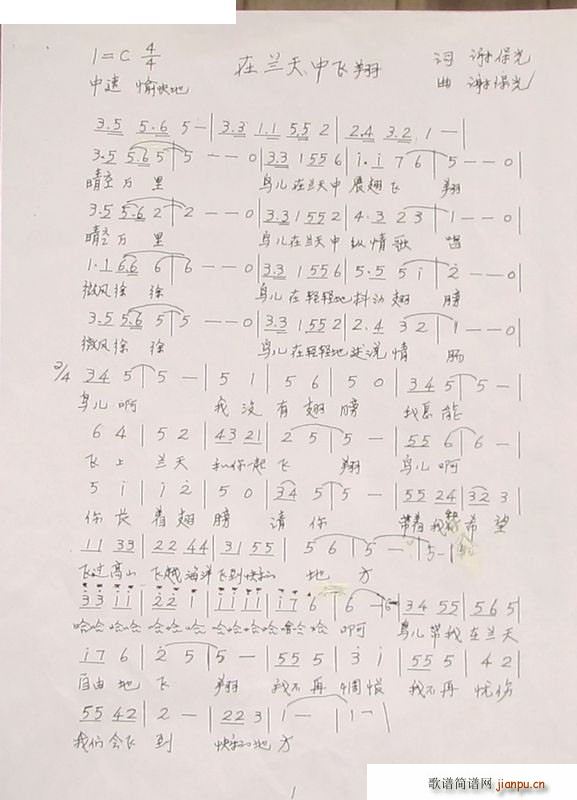 1=C 4/4 在兰天中飞翔 词 谢保光
中速 愉快地 曲 谢保光
3.5 5.6 5 — | 3.3 1.1 5.5 2 | 2.4 3.2 1 — |
3.5 5.6 5 | 5 — — 0 | 3.3 1 5 5 6 | i.i 7 6 | 5 — — 0 |
晴空万里 鸟儿在兰天中展翅飞翔
3.5 5.6 2 | 2 — — 0 | 3.3 1 5 5 2 | 4.3 2 3 | 1 — — 0 |
晴空万里 鸟儿在兰天中纵情歌唱
1.1 6.6 6 | 6 — — 0 | 3.3 1 5 5 6 | 5.5 5 i | 2 — — 0 |
微风徐徐 鸟儿在轻轻地抖动翅膀
3.5 5.6 5 | 5 — — 0 | 3.3 1 5 5 2 | 2.4 3 2 | 1 — — 0 |
微风徐徐 鸟儿在轻轻地述说情肠
2/4 3 4 5 | 5 — | 5 1 | 5 6 | 5 0 | 3 4 5 | 5 — |
鸟儿啊 我没有翅膀 我愿能
6 4 | 5 2 | 43 21 | 2 5 | 5 — | 55 6 | 6 — |
飞上兰天和你一起飞翔 鸟儿啊
5 i | i 2 | 5 0 | 34 5 | 5 — | 55 24 | 32 3 |
你长着翅膀 请你 带着我 希望
11 33 | 22 44 | 31 55 | 5 6 | 5 — | 5 — |
飞过高山飞越海洋飞到快乐地方
33 ii | 22 1 | ii ii | i7 6 | 6 — | 34 55 | 56 5 |
哈哈哈哈哈哈哈哈哈哈哈哈哈哈 啊 鸟儿带我在兰天
i7 6 | 2 5 | 5 — | 55 5 | 3 i | 55 5 | 4 2 |
自由地飞翔 我不再惆怅 我不再忧伤
55 42 | 2 — | 22 3 | 1 — | 1 — |
我们会飞到 快乐地方
1
歌谱简谱网 jianpu.cn